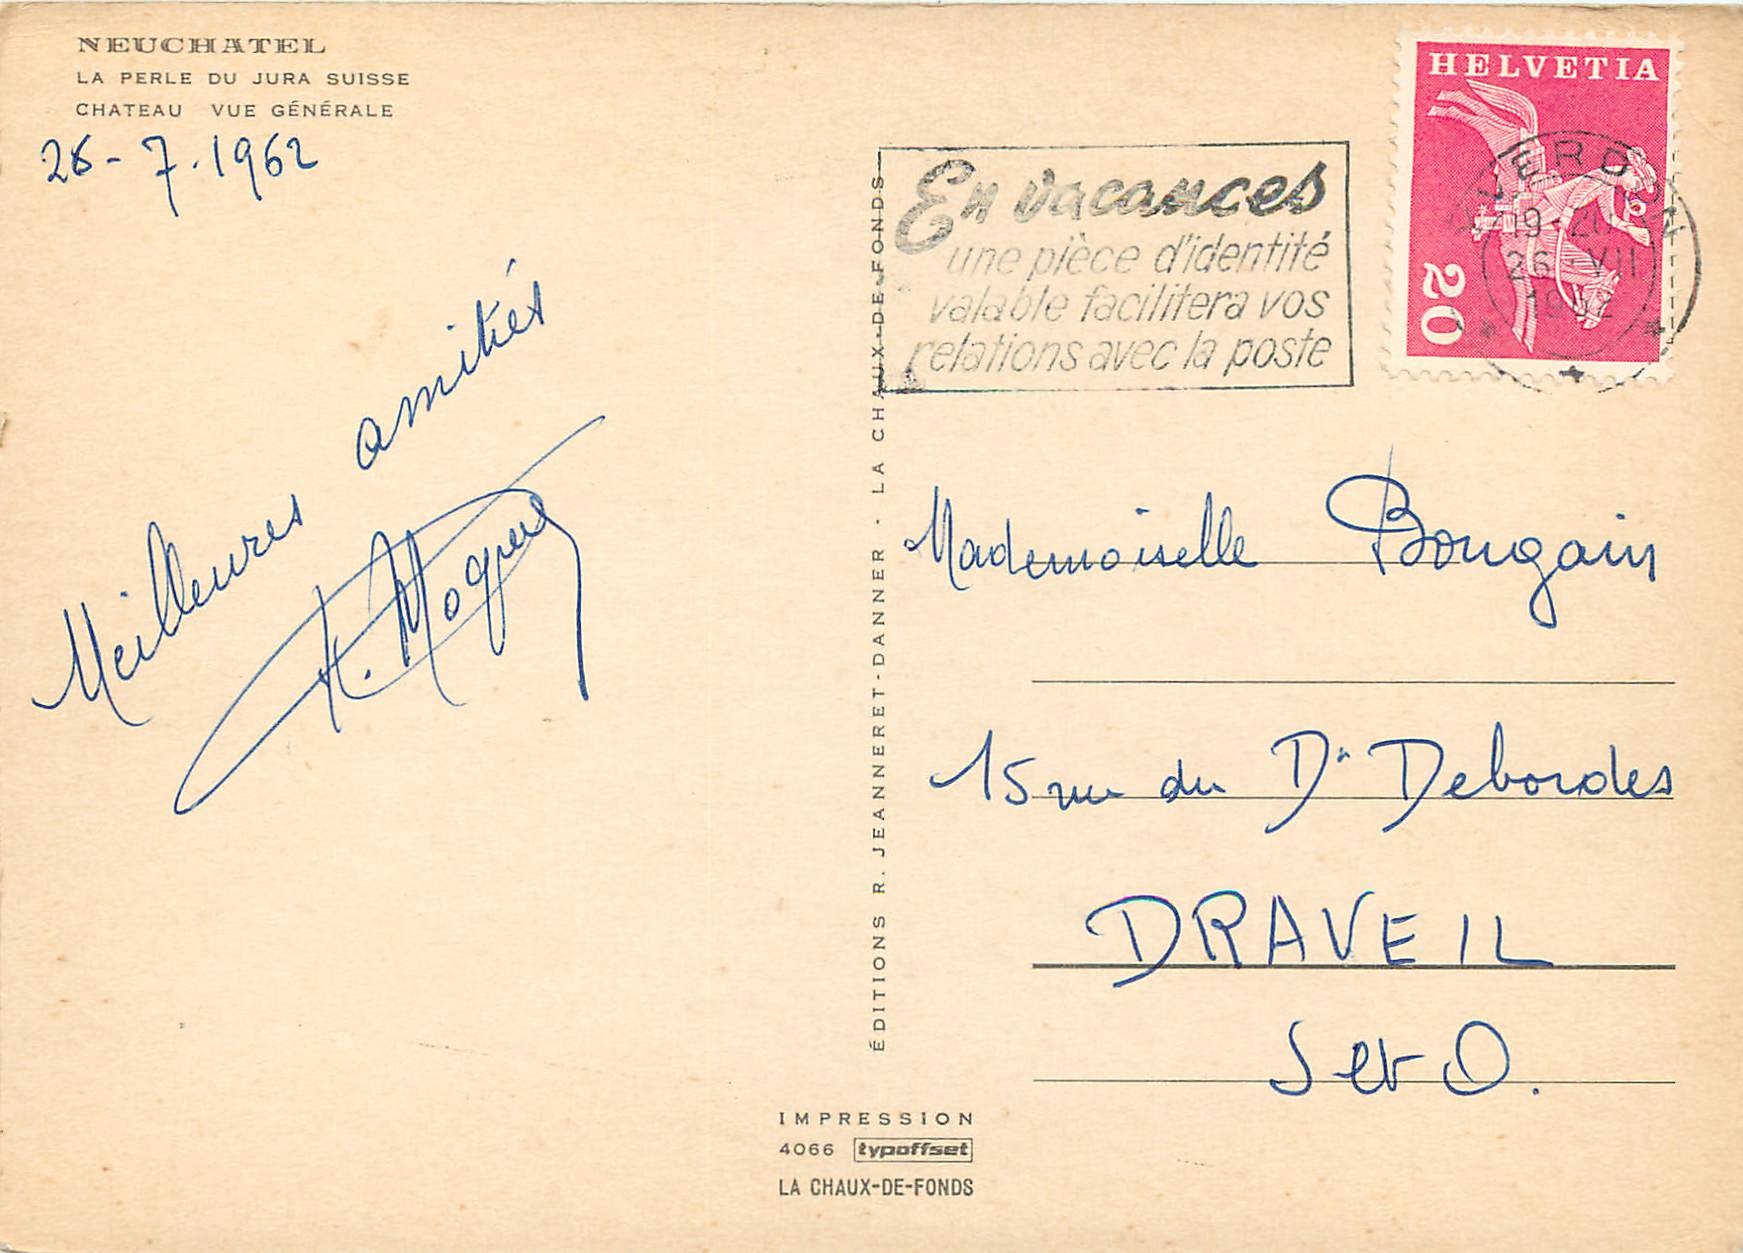 NEUCHATEL
LA PERLE DU JURA SUISSE
CHATEAU VUE GÉNÉRALE
26-7.1962
Meilleures amitiés
ÉDITIONS R. JEANNERET-DANNER - LA CHAUX-DE-FONDS
En vacances
une pièce d'identité
valable facilitera vos
relations avec la poste
HELVETIA
20
YVERDON
19-20
26-VII
1962
Mademoiselle Bougain
15 rue du Dr Debordes
DRAVEIL
S et O.
IMPRESSION
4066 typoffset
LA CHAUX-DE-FONDS